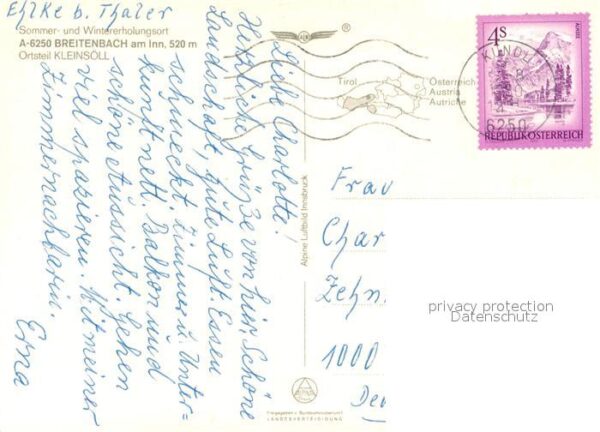 Ehlke b. Thaler
Sommer- und Wintererholungsort
A-6250 BREITENBACH am Inn, 520 m
Ortsteil KLEINSÖLL
Liebe Charlotte!
Herzliche Grüße von hier. Schöne
Landschaft, gute Luft. Essen
schmeckt. Zimmer u. Unter=
kunft nett. Balkon und
schöne Aussicht. Gehen
viel spazieren. Mit meiner
Zimmernachbarin.
Erna
Alpine Luftbild Innsbruck
ALPINE
Freigegeben v. Bundesministerium f.
LANDESVERTEIDIGUNG
Tirol
Österreich
Austria
Autriche
KUNDL
6250
4 S
ALMSEE
REPUBLIK ÖSTERREICH
Frau
Char
Zehn
1000
privacy protection
Datenschutz